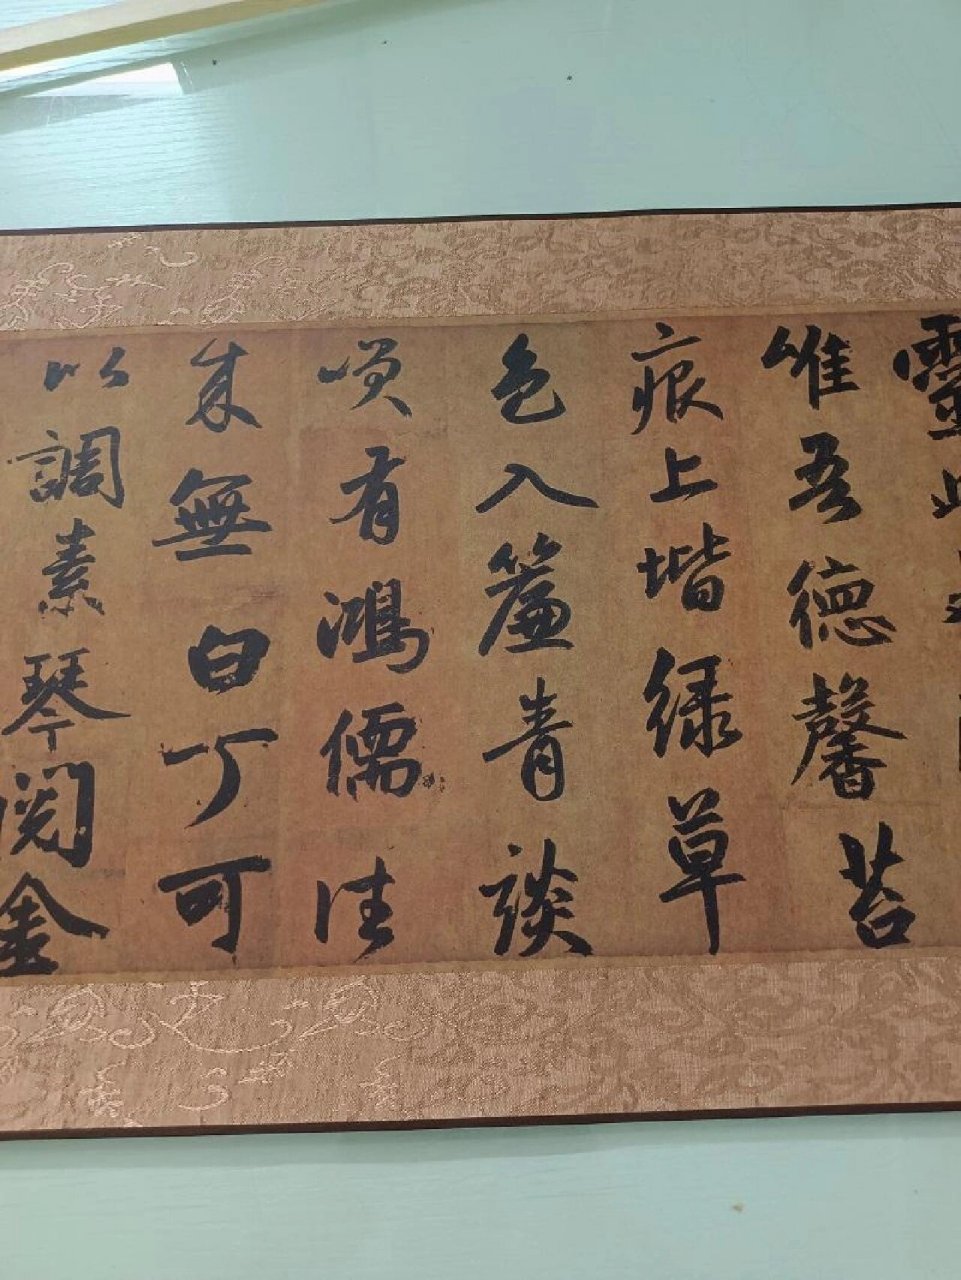 靈
唯吾德馨苔
痕上堦緑草
色入簾青談
唉有鴻儒往
来無白丁可
以調素琴閱金